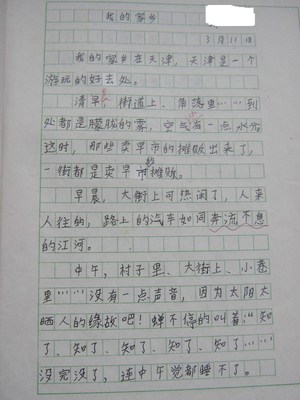 我的家乡
3月11日
我的家乡在天津,天津是一个
游玩的好去处。
清早,街道上、角落里……到
处都是朦胧的雾,空气有一点水分
这时,那些卖早市的摊贩出来了,
一街都是卖早市的摊贩。
早晨,大街上可热闹了,人来
人往的,路上的汽车如同奔流不息
的江河。
中午,村子里、大街上、小巷
里……没有一点声音,因为太阳太
晒人的缘故吧!蝉不停的叫着:“知
了、知了、知了、知了、知了……
没完没了,连中午觉都睡不了。